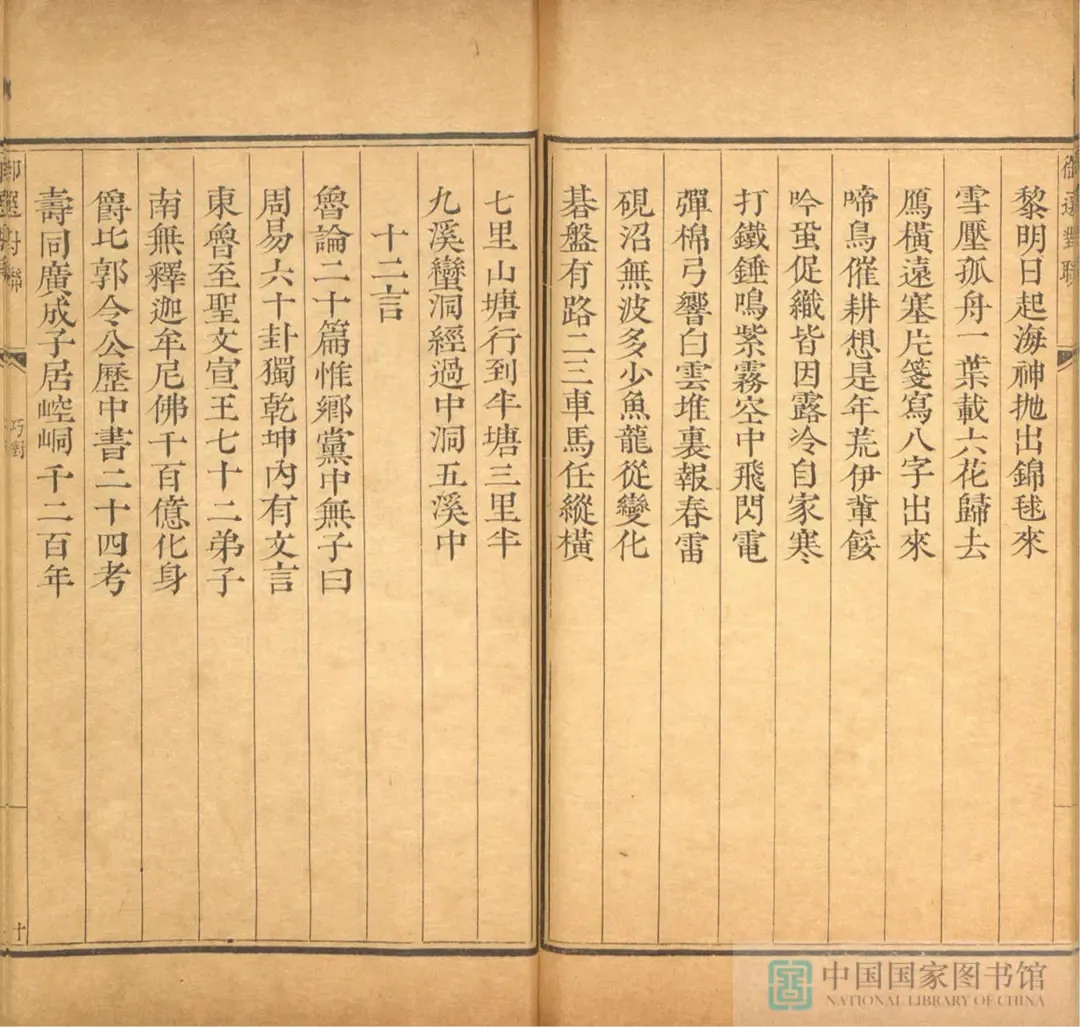 御選對聯
黎明日起海神拋出錦毬來
雪壓孤舟一葉載六花歸去
鴈橫遠塞片箋寫八字出來
啼鳥催耕想是年荒伊輩餒
吟蛩促織皆因露冷自家寒
打鐵錘鳴紫霧空中飛閃電
彈棉弓響白雲堆裏報春雷
硯沼無波多少魚龍從變化
碁盤有路二三車馬任縱橫
七里山塘行到半塘三里半
九溪蠻洞經過中洞五溪中
十二言
魯論二十篇惟鄉黨中無子曰
周易六十卦獨乾坤內有文言
東魯至聖文宣王七十二弟子
南無釋迦牟尼佛千百億化身
爵比郭令公歷中書二十四考
壽同廣成子居崆峒千二百年
巧對
十
中国国家图书馆
NATIONAL LIBRARY OF CHINA